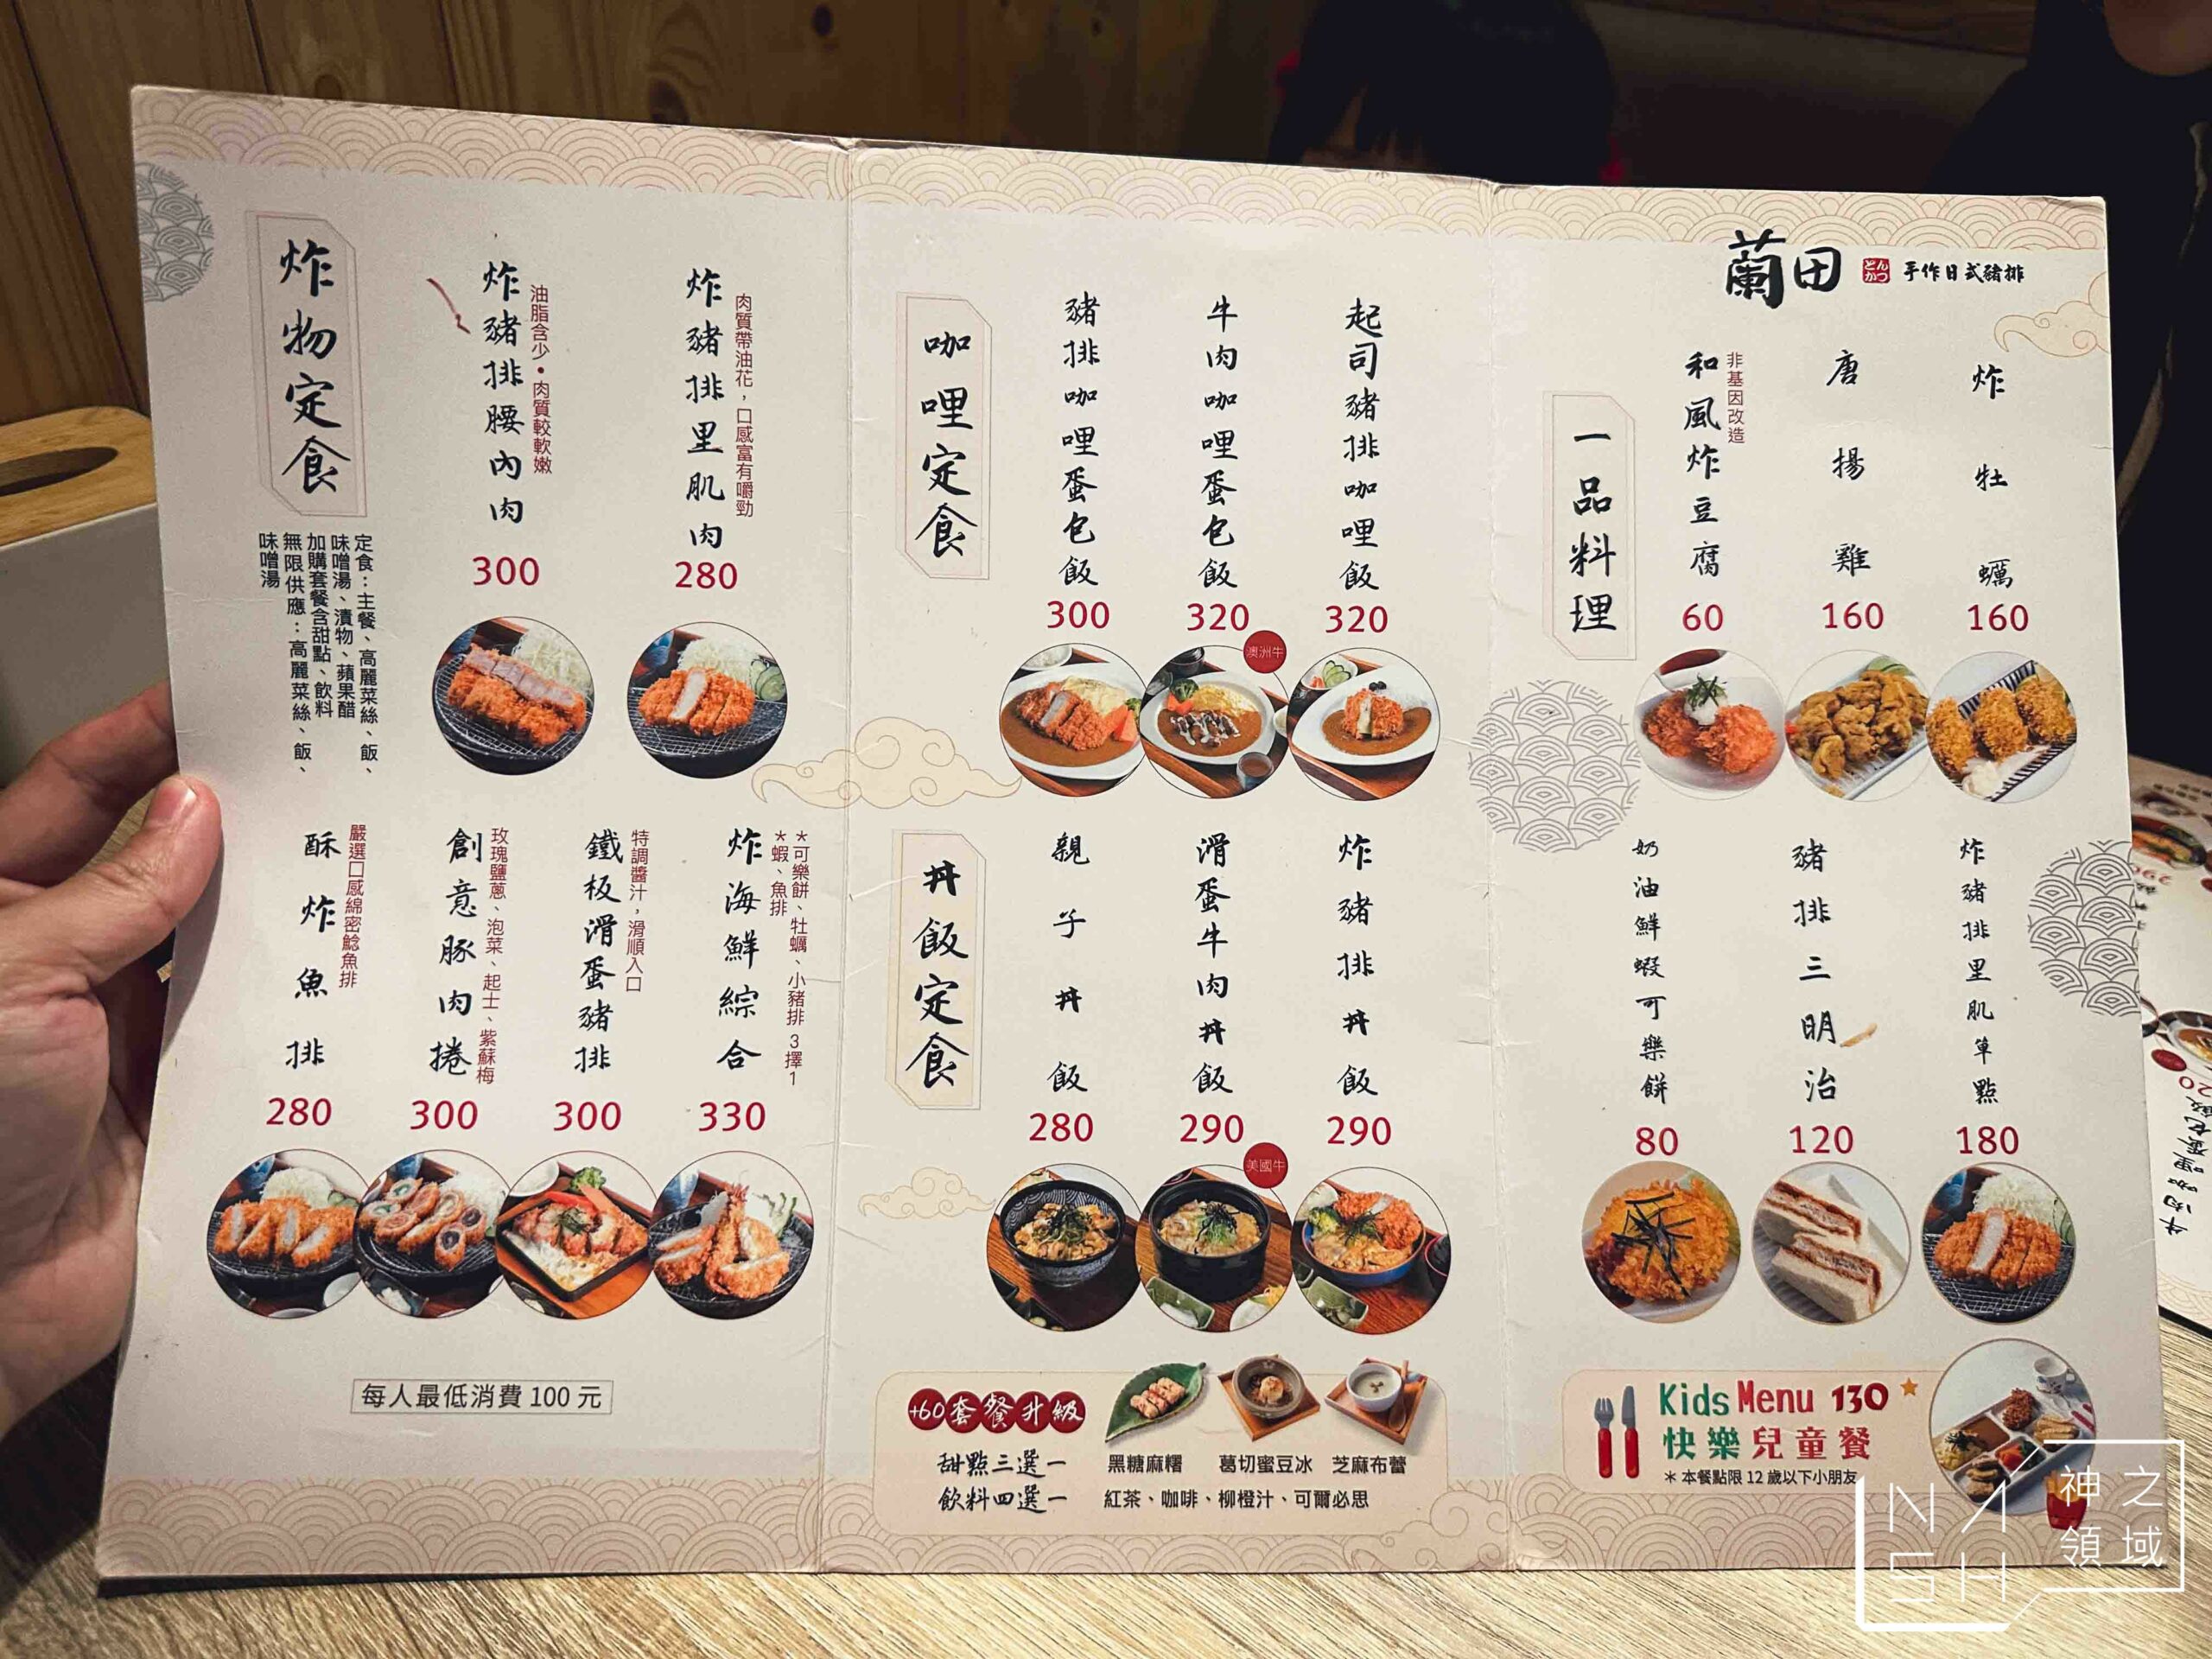 炸物定食
定食：主餐、高麗菜絲、飯、
味噌湯、漬物、蘋果醋
加購套餐含甜點、飲料
無限供應：高麗菜絲、飯、
味噌湯
炸豬排腰內肉
油脂含少•肉質較軟嫩
300
炸豬排里肌肉
肉質帶油花，口感富有嚼勁
280
酥炸魚排
嚴選口感綿密鯰魚排
280
創意豚肉捲
玫瑰鹽蔥、泡菜、起士、紫蘇梅
300
鐵板滑蛋豬排
特調醬汁，滑順入口
300
炸海鮮綜合
＊可樂餅、牡蠣、小豬排 3擇1
＊蝦、魚排
330
每人最低消費 100 元
咖哩定食
豬排咖哩蛋包飯
300
牛肉咖哩蛋包飯
320
澳洲牛
起司豬排咖哩飯
320
丼飯定食
親子丼飯
280
滑蛋牛肉丼飯
290
美國牛
炸豬排丼飯
290
+60套餐升級
甜點三選一
黑糖麻糬 葛切蜜豆冰 芝麻布蕾
飲料四選一
紅茶、咖啡、柳橙汁、可爾必思
蘭田 とんかつ 手作日式豬排
一品料理
和風炸豆腐
非基因改造
60
唐揚雞
160
炸牡蠣
160
奶油鮮蝦可樂餅
80
豬排三明治
120
炸豬排里肌單點
180
Kids Menu 130
快樂兒童餐
＊本餐點限 12 歲以下小朋友
牛肉咖哩蛋包飯
NASH
神之
領域